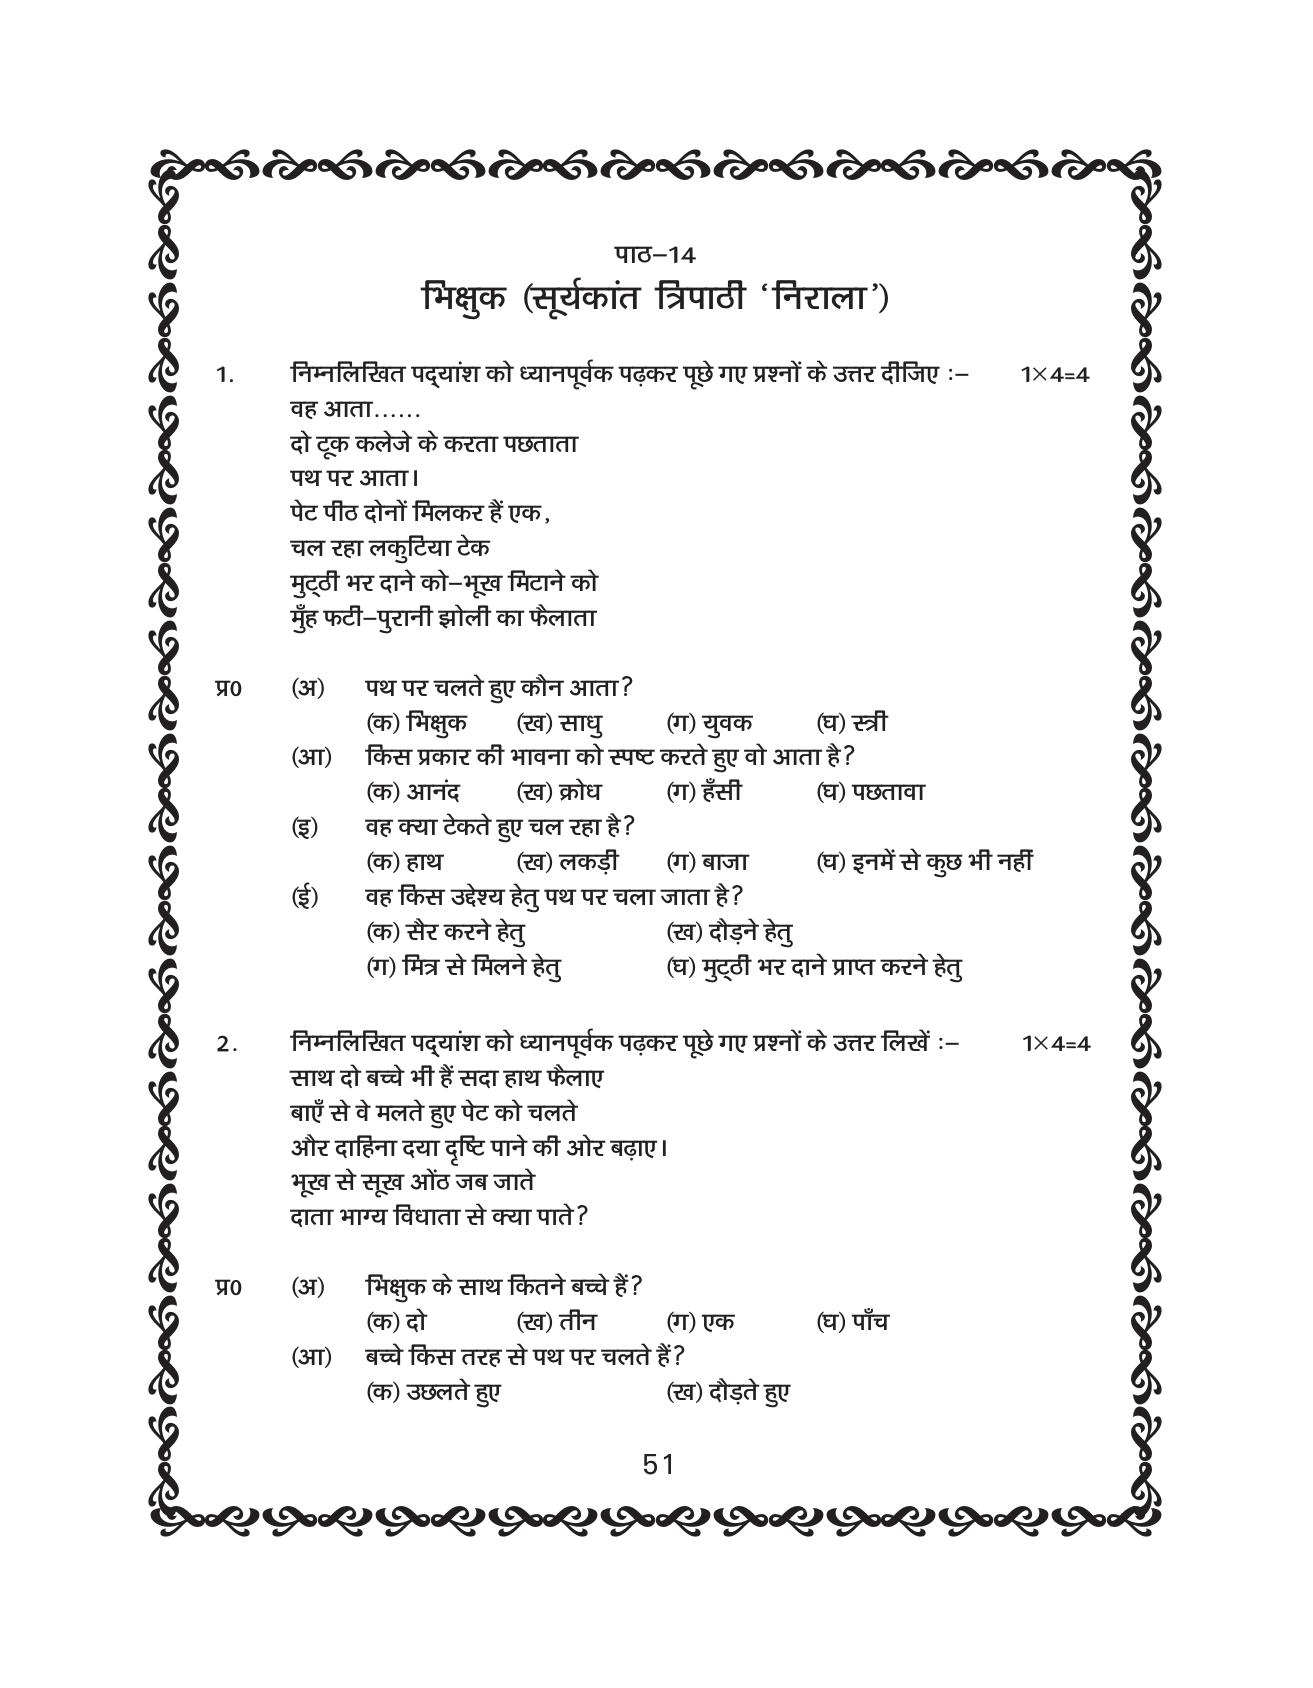 पाठ–14
भिक्षुक (सूर्यकांत त्रिपाठी ‘निराला’)
1. निम्नलिखित पद्यांश को ध्यानपूर्वक पढ़कर पूछे गए प्रश्नों के उत्तर दीजिए :– 1×4=4
वह आता......
दो टूक कलेजे के करता पछताता
पथ पर आता।
पेट पीठ दोनों मिलकर हैं एक,
चल रहा लकुटिया टेक
मुट्ठी भर दाने को–भूख मिटाने को
मुँह फटी–पुरानी झोली का फैलाता
प्र0 (अ) पथ पर चलते हुए कौन आता?
(क) भिक्षुक (ख) साधु (ग) युवक (घ) स्त्री
(आ) किस प्रकार की भावना को स्पष्ट करते हुए वो आता है?
(क) आनंद (ख) क्रोध (ग) हँसी (घ) पछतावा
(इ) वह क्या टेकते हुए चल रहा है?
(क) हाथ (ख) लकड़ी (ग) बाजा (घ) इनमें से कुछ भी नहीं
(ई) वह किस उद्देश्य हेतु पथ पर चला जाता है?
(क) सैर करने हेतु (ख) दौड़ने हेतु
(ग) मित्र से मिलने हेतु (घ) मुट्ठी भर दाने प्राप्त करने हेतु
2. निम्नलिखित पद्यांश को ध्यानपूर्वक पढ़कर पूछे गए प्रश्नों के उत्तर लिखें :– 1×4=4
साथ दो बच्चे भी हैं सदा हाथ फैलाए
बाएँ से वे मलते हुए पेट को चलते
और दाहिना दया दृष्टि पाने की ओर बढ़ाए।
भूख से सूख ओंठ जब जाते
दाता भाग्य विधाता से क्या पाते?
प्र0 (अ) भिक्षुक के साथ कितने बच्चे हैं?
(क) दो (ख) तीन (ग) एक (घ) पाँच
(आ) बच्चे किस तरह से पथ पर चलते हैं?
(क) उछलते हुए (ख) दौड़ते हुए
51